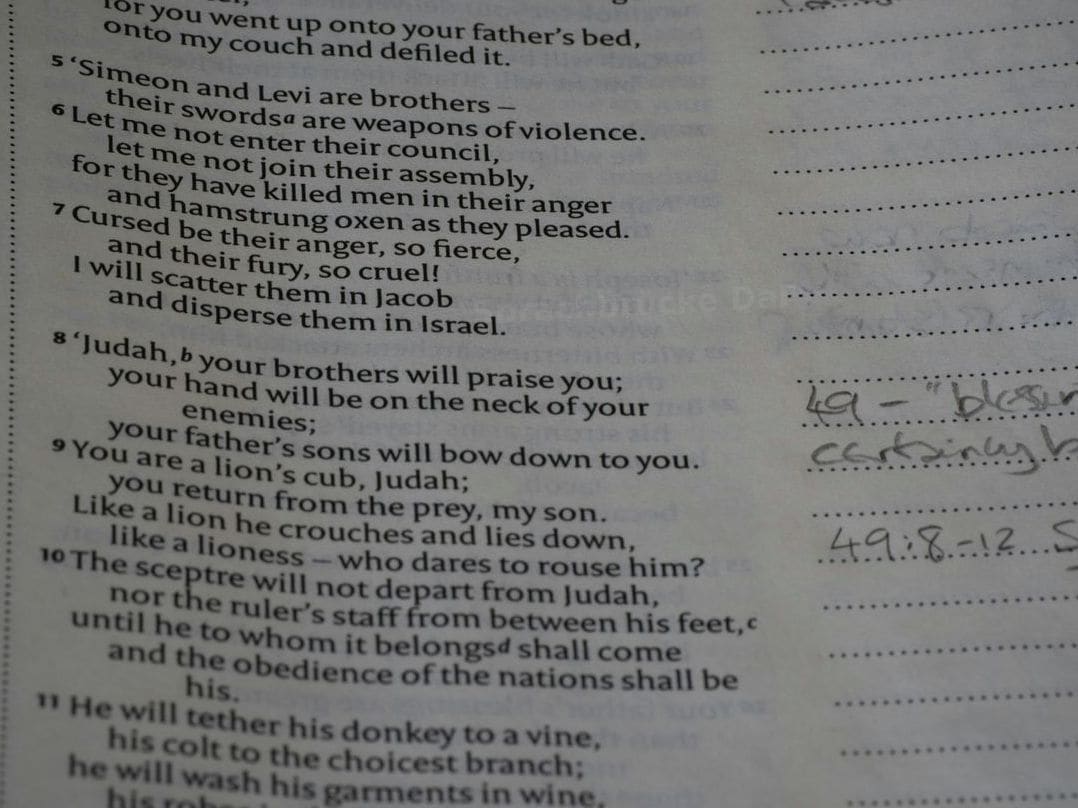 for you went up onto your father's bed,
onto my couch and defiled it.
5 ‘Simeon and Levi are brothers –
their swordsa are weapons of violence.
6 Let me not enter their council,
let me not join their assembly,
for they have killed men in their anger
and hamstrung oxen as they pleased.
7 Cursed be their anger, so fierce,
and their fury, so cruel!
I will scatter them in Jacob
and disperse them in Israel.
8 ‘Judah,b your brothers will praise you;
your hand will be on the neck of your
enemies;
your father's sons will bow down to you.
9 You are a lion's cub, Judah;
you return from the prey, my son.
Like a lion he crouches and lies down,
like a lioness – who dares to rouse him?
10 The sceptre will not depart from Judah,
nor the ruler's staff from between his feet,c
until he to whom it belongsd shall come
and the obedience of the nations shall be
his.
11 He will tether his donkey to a vine,
his colt to the choicest branch;
he will wash his garments in wine,
his
49 – "
49:8-12